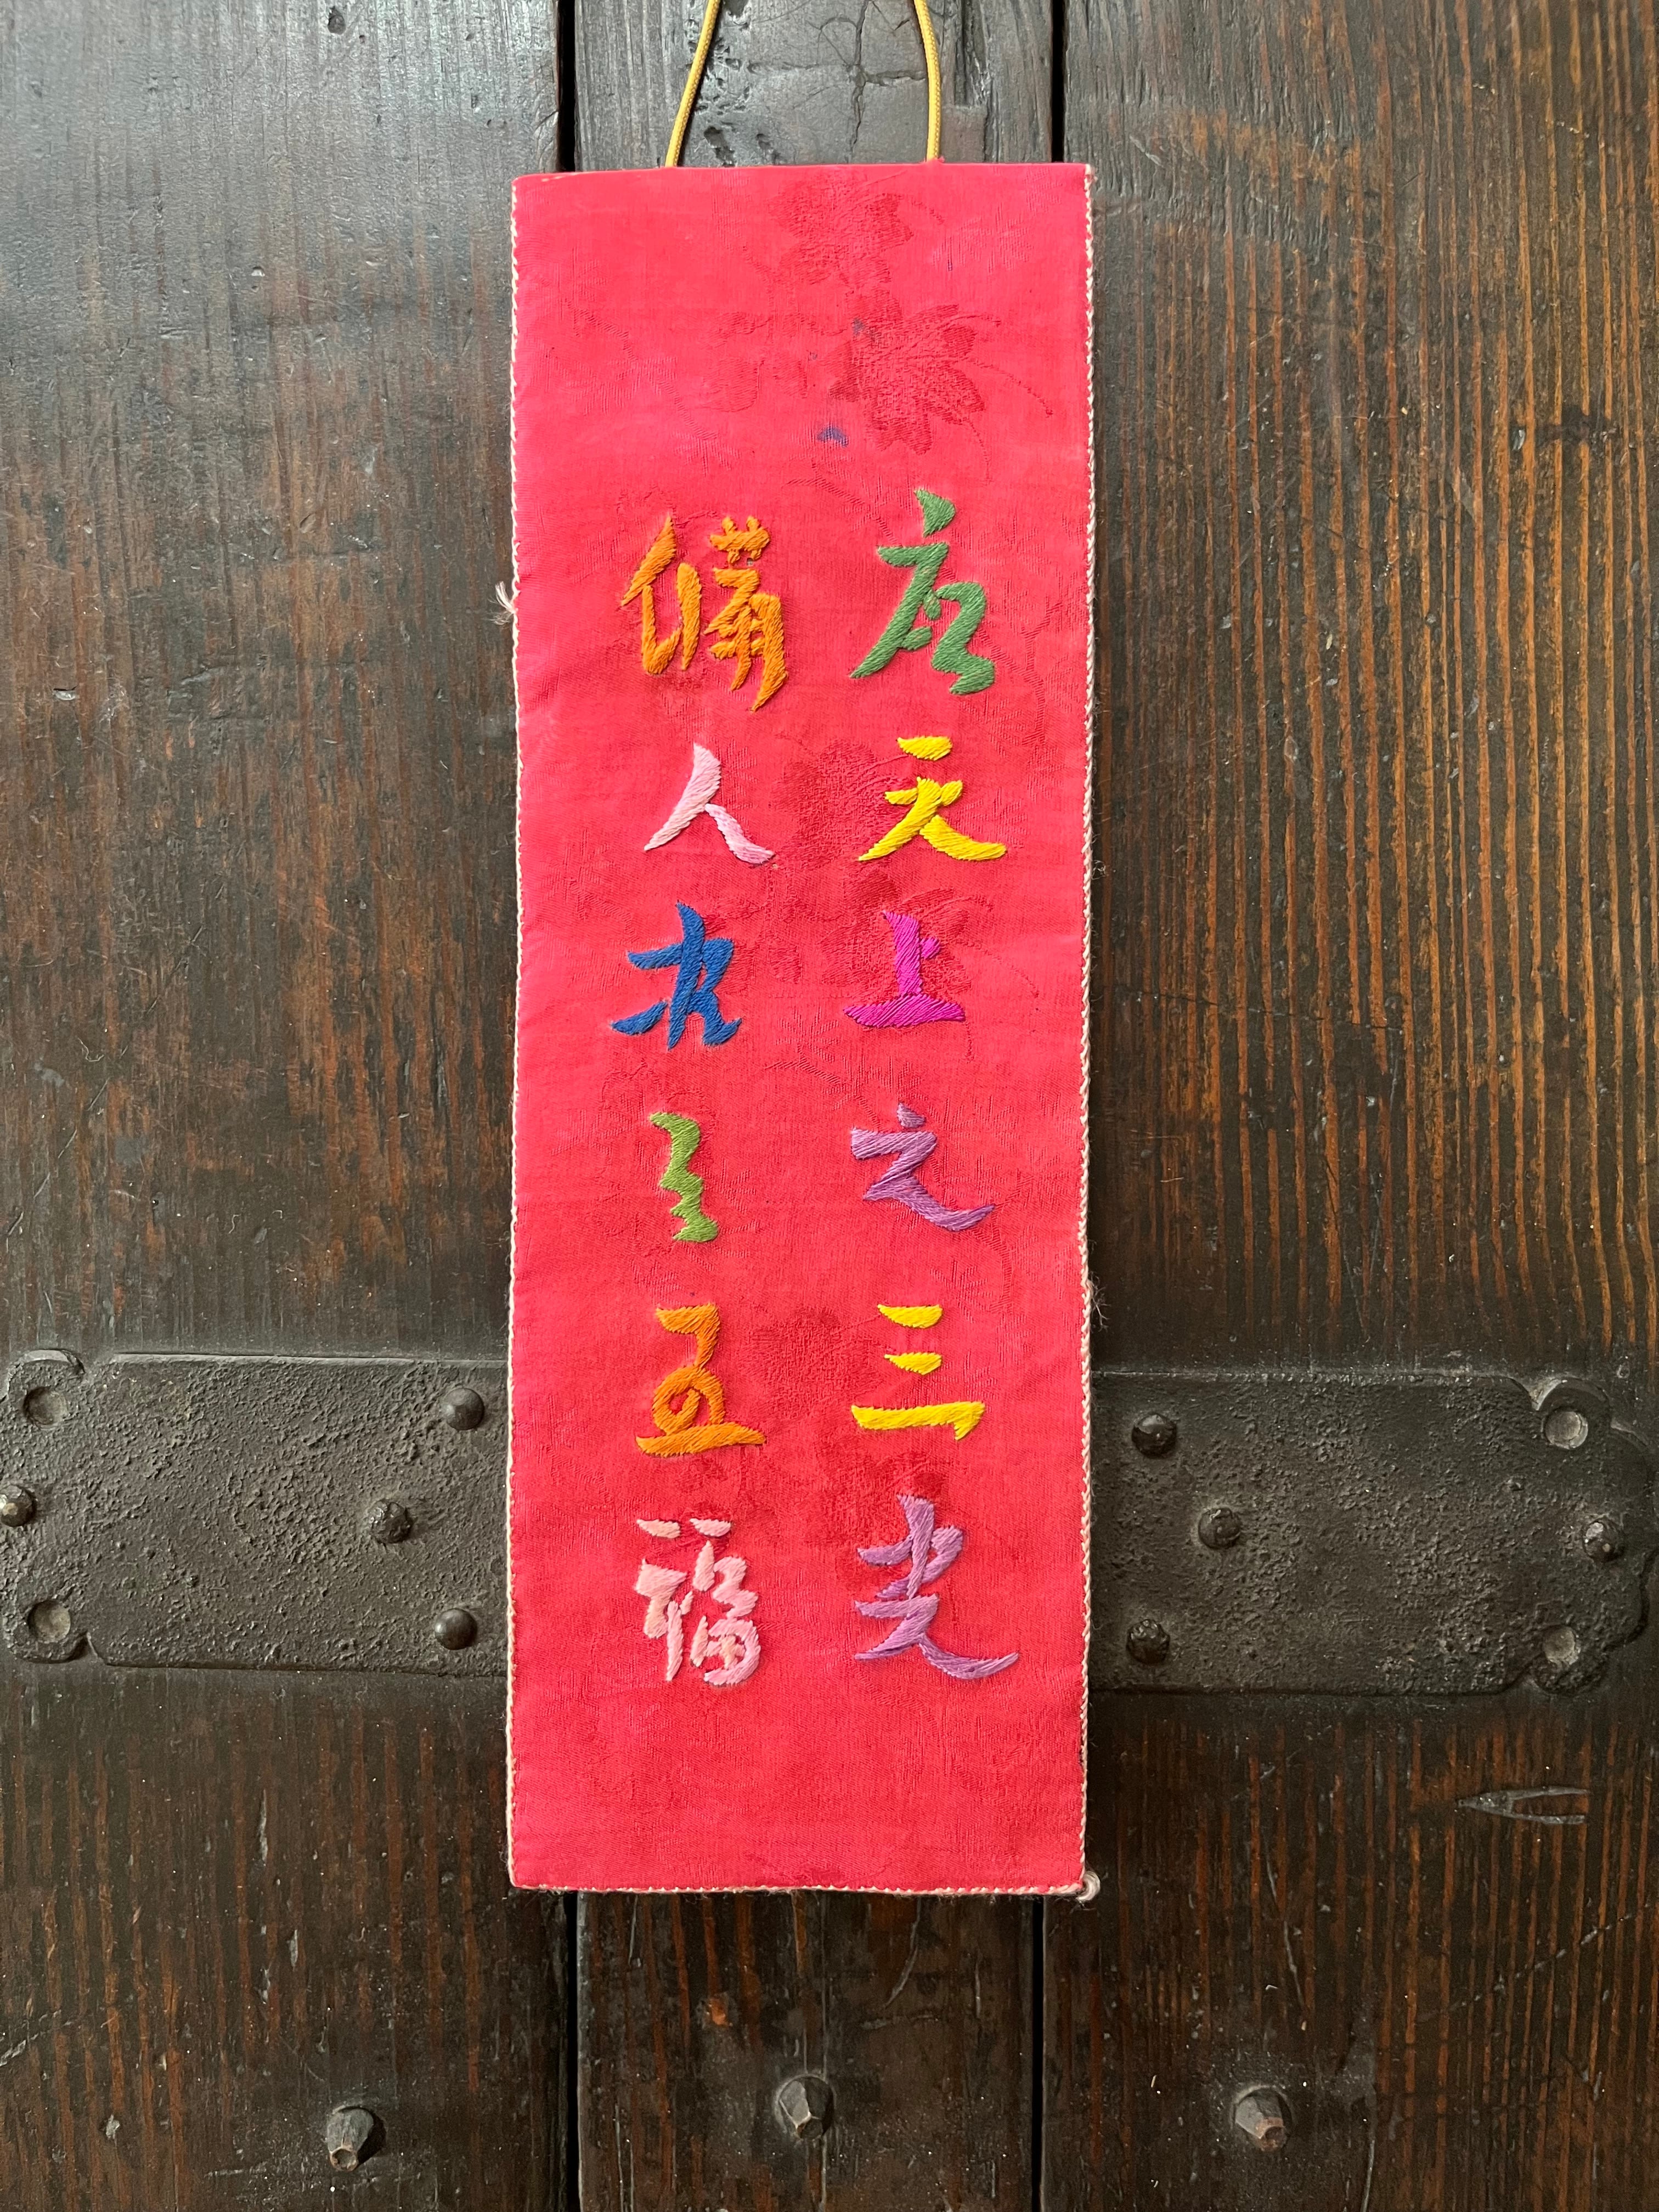 應天上之三光
備人間之五福